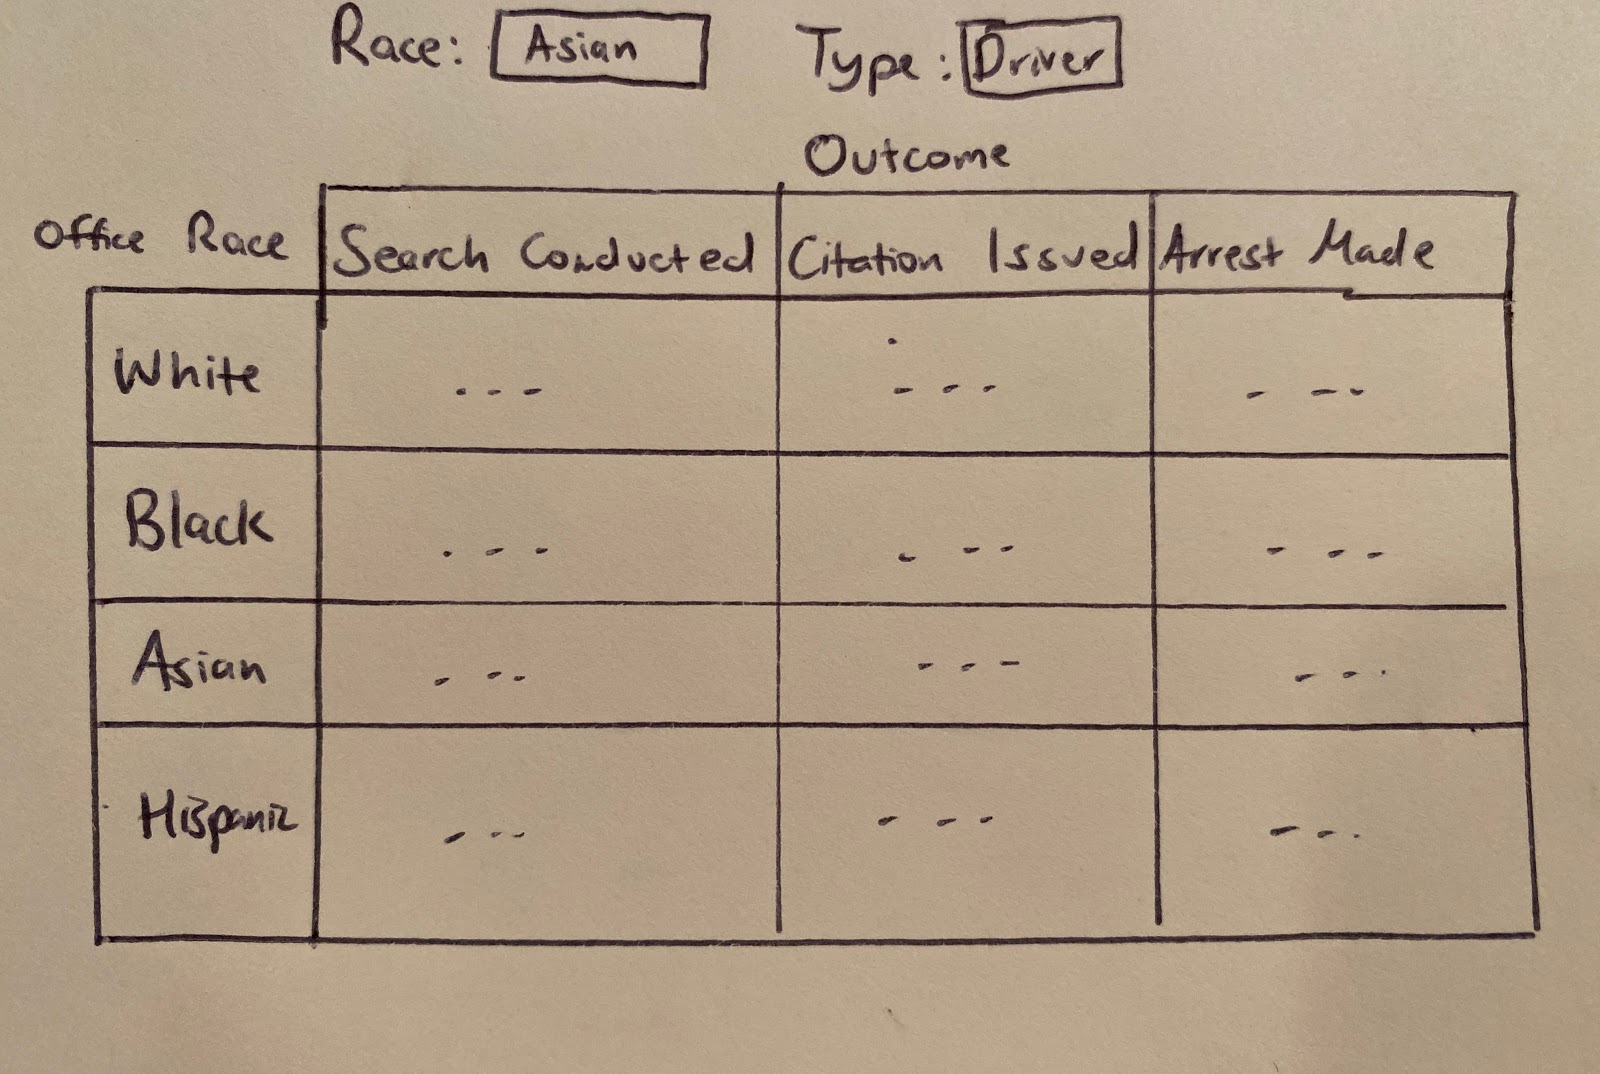 Race: Asian Type: Driver
Outcome
Office Race Search Conducted Citation Issued Arrest Made
White --- --- ---
Black --- --- ---
Asian --- --- ---
Hispanic --- --- ---